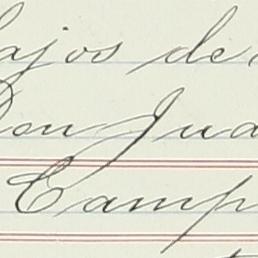 ajos de
Don Jua
Camp